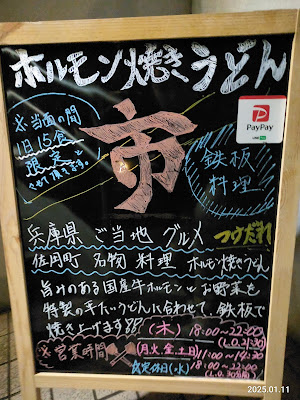 ホルモン焼きうどん
※当面の間
1日15食
限定と
させて頂きます。
市
PayPay
鉄板
料理
兵庫県 ご当地 グルメ つけだれ
佐用町 名物 料理 ホルモン焼きうどん
旨みのある国産牛ホルモンとお野菜を
特製の平たいうどんに合わせて、鉄板で
焼き上げます
(木) 18:00〜22:00
(L.O.21:30)
※営業時間
(月火金土日) 11:00〜14:30
18:00〜22:00
(L.O.30分前)
定休日(水)
2025.01.11